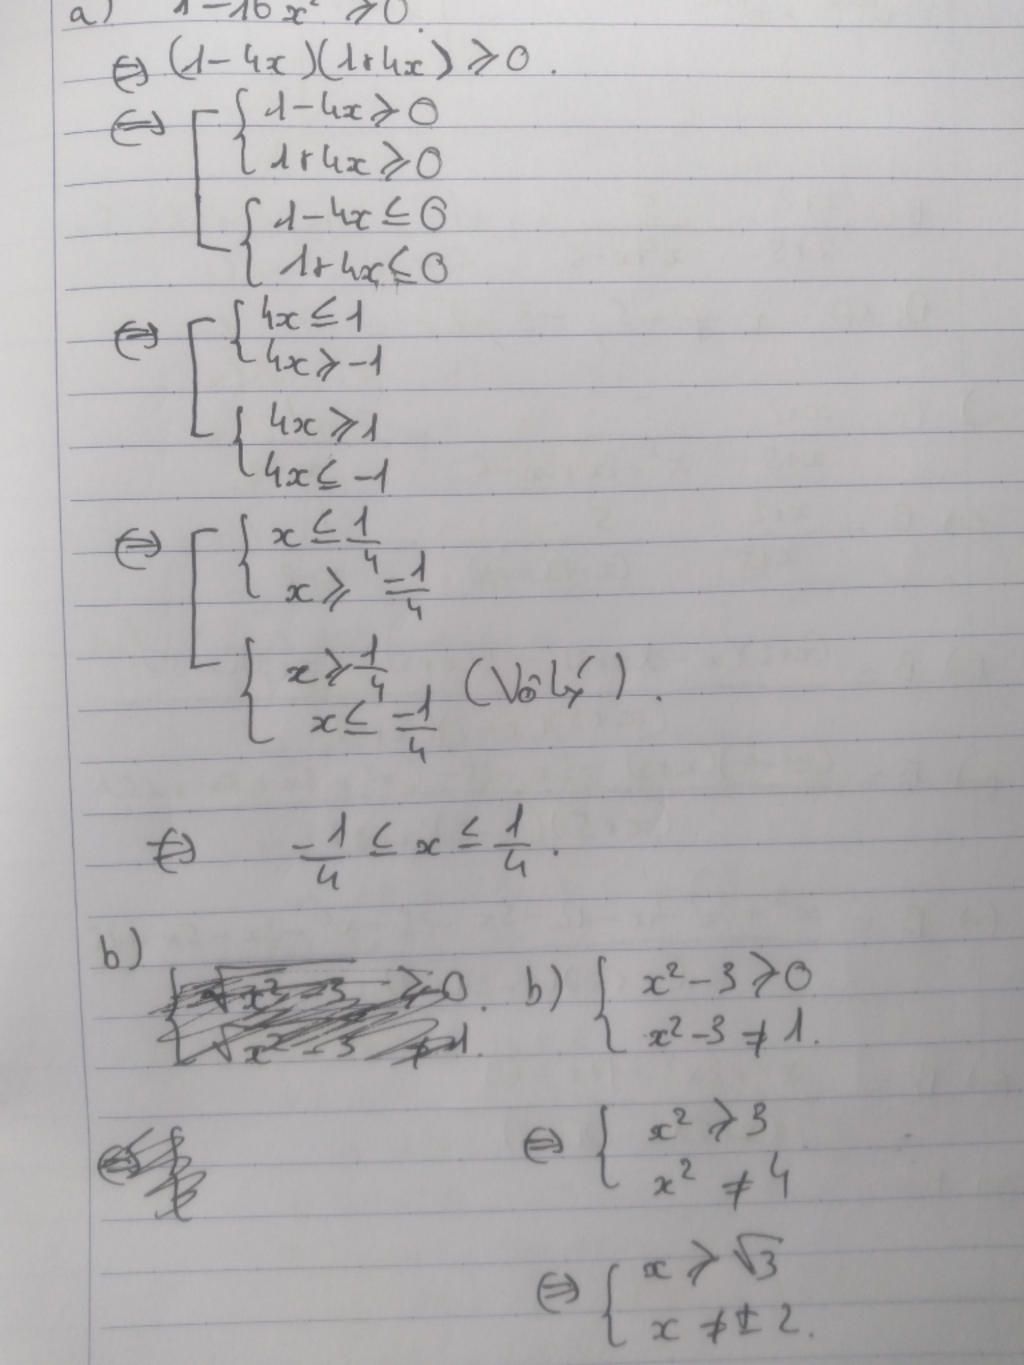 a) 1 - 16x² ⩾ 0.
⇔ (1 - 4x)(1 + 4x) ⩾ 0.
⇔ [ { 1 - 4x ⩾ 0
1 + 4x ⩾ 0
{ 1 - 4x ≤ 0
1 + 4x ≤ 0
⇔ [ { 4x ≤ 1
4x ⩾ -1
{ 4x ⩾ 1
4x ≤ -1
⇔ [ { x ≤ 1/4
x ⩾ -1/4
{ x ⩾ 1/4
x ≤ -1/4 (Vô lý).
⇔ -1/4 ≤ x ≤ 1/4.
b)
b) { x² - 3 ⩾ 0
x² - 3 ≠ 1.
⇔ { x² ⩾ 3
x² ≠ 4
⇔ { x ⩾ √3
x ≠ ± 2.